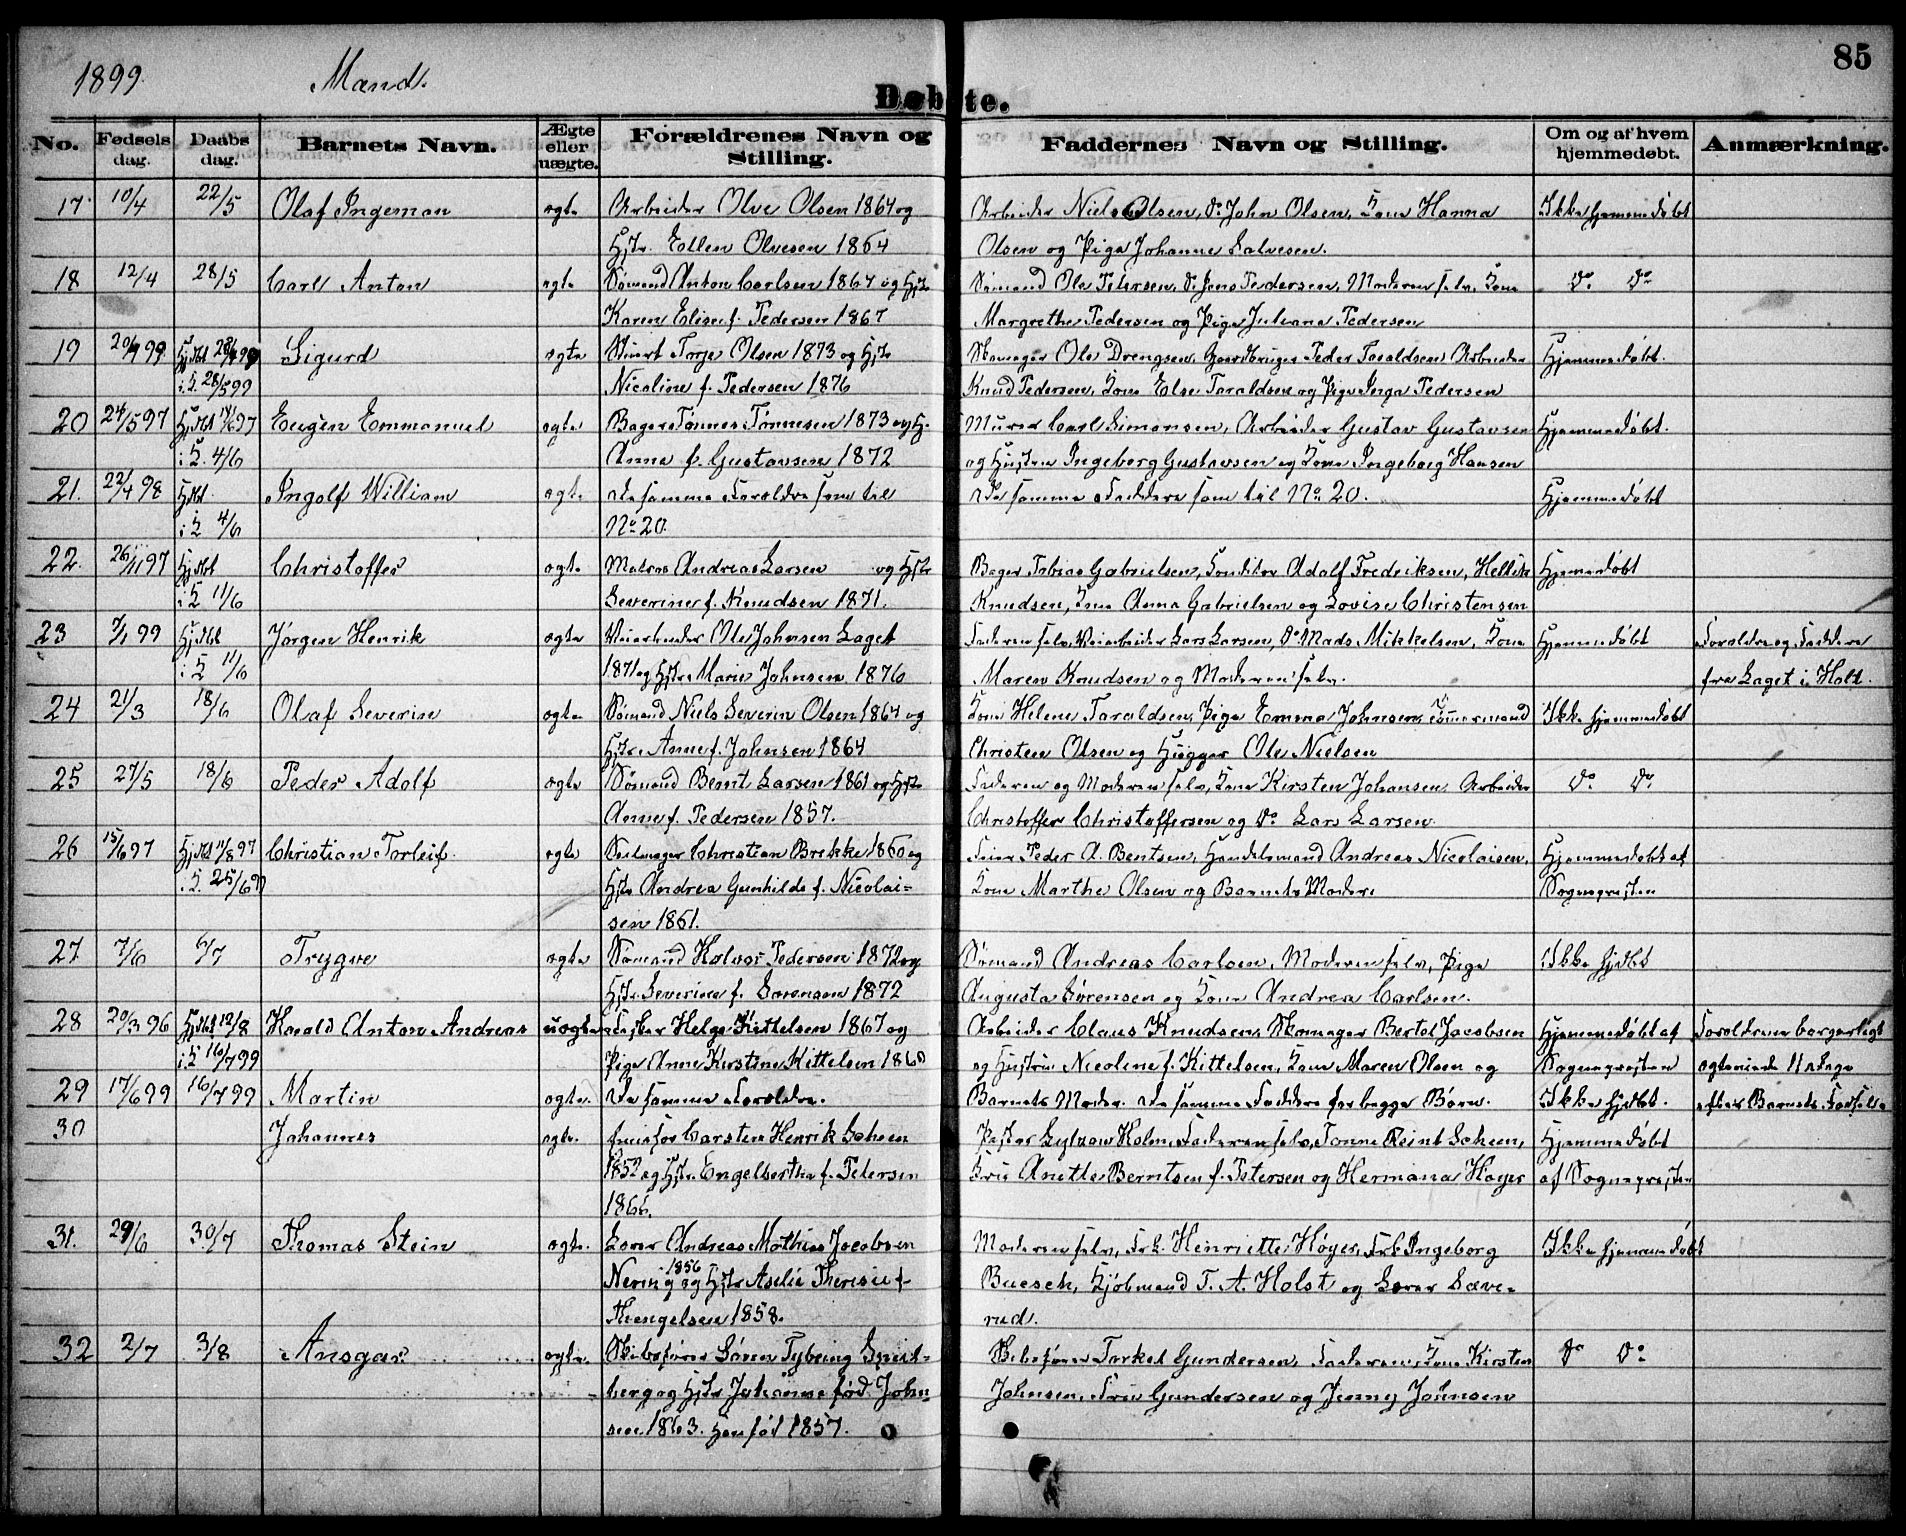 1899. Mænd. 85
Døbte.
No. Fødsels dag. Daabs dag. Barnets Navn. Ægte eller uægte. Forældrenes Navn og Stilling. Faddernes Navn og Stilling. Om og af hvem hjemmedøbt. Anmærkning.
17 10/4 22/5 Olaf Ingeman ægte Arbeider Olve Olsen 1864 og Arbeider Niels Olsen, do John Olsen, Kone Hanna Ikke hjemmedøbt
Hstr. Ellen Olvesen 1864 Olsen og Pige Johanne Salvesen.
18 12/4 28/5 Carl Anton ægte Sømand Anton Carlsen 1867 og Hstr Sømand Ole Petersen, do Jens Pedersen, Moderen selv, Kone do do
Karen Elise f. Pedersen 1867 Margrethe Pedersen og Pige Juliana Pedersen
19 Hjdbt Sigurd ægte Stuert Torje Olsen 1873 og Hstr Skomager Ole Drengsen, Gaardbruger Peder Taraldsen Arbeider Hjemmedøbt.
i K. 28/5 99 Nicoline f. Pedersen 1876 Knud Pedersen, Kone Else Taraldsen og Pige Inga Pedersen
20 24/5 97 Hjdbt Eugen Emmanuel ægte Bager Tønnes Tønnesen 1873 og H. Murer Carl Simonsen, Arbeider Gustav Gustavsen Hjemmedøbt.
i K. 4/6 Anna f. Gustavsen 1872 og Hustru Ingeborg Gustavsen og Kone Ingeborg Hansen
21. 22/4 98 Hjdbt Ingolf William ægte De samme Forældre som til De samme Faddere som til No 20. Hjemmedøbt
i K 4/6 No 20.
22. 26/11 97 Hjdbt Christoffer ægte Matros Andreas Larsen og Hstr Bager Tobias Gabrielsen, Konditor Adolf Fredriksen, Hjemmedøbt
i K 11/6 Severine f. Knudsen 1871. Knudsen, Kone Anna Gabrielsen og Lovise Christensen
23 99 Hjdbt Jørgen Henrik ægte Veiarbeider Ole Johnsen Laget Faderen selv, Veiarbeider Lars Larsen, do Mads Mikkelsen, Kone Hjemmedøbt Forældre og Faddere
i K 11/6 1871 og Hstr. Marie Johnsen 1876 Maren Knudsen og Moderen selv. fra Laget i Holt.
24 21/3 18/6 Olaf Severin ægte Sømand Niels Severin Olsen 1864 og Kone Helene Taraldsen, Pige Emma Johnsen, Tømmermand Ikke hjemmedøbt
Hstr. Anne f. Johnsen 1864 Christen Olsen og Hugger Ole Nielsen
25 27/5 18/6 Peder Adolf ægte Sømand Bernt Larsen 1861 og Hstr Faderen og Moderen selv, Kone Kirsten Johansen Arbeider do do
Anne f. Pedersen 1857. Christoffer Christoffersen og do Lars Larsen
26 15/6 97 Hjdbt 11/8 97 Christian Torleif. ægte Seilmager Christian Brekke 1860 og Feier Peder A. Bentsen, Handelsmand Andreas Nicolaisen, Hjemmedøbt af
i K. 25/6 Hstr Andrea Gunhilde f. Nicolai- Kone Marthe Olsen og Barnets Moder Sognepresten
sen 1861.
27 7/6 6/7 Trygve ægte Sømand Halvor Pedersen 1872 og Sømand Andreas Carlsen, Moderen selv, Pige Ikke hjdbt
Hstr Severine f. Sørensen 1872 Augusta Sørensen og Kone Andrea Carlsen.
28 20/3 96 Hjdbt 12/8 Harald Anton Andreas uægte Fisker Helge Kittelsen 1867 og Arbeider Claus Knudsen, Skomager Bertel Jacobsen Hjemmedøbt af Forældrene borgerligt
i K 16/7 99 Pige Anne Kirstine Kittelsen og Hustru Nicoline f. Kittelsen, Kone Maren Olsen og Sognepresten ægteviede 11 dage
29 17/6 99 16/7 99 Martin ægte. De samme Forældre. Barnets Moder. De samme Faddere for begge Børn. Ikke hjdbt. efter Barnets Fødsel
30 Johannes ægte. Carsten Henrik Scheen Pastor Holm, Faderen selv, Scheen, Hjemmedøbt
1852 og Hstr. Engelbertha f. Petersen Fru Anette Berntsen f. Petersen og Hermana Høyer af Sognepresten
1866.
31. 29/6 30/7 Thomas Stein ægte. Lærer Andreas Mathias Jacobsen Moderen selv, Frk. Henriette Høyer, Frk Ingeborg Ikke hjemmedøbt
Nering 1856 og Hstr Theresie f. Buesch, Kjøbmand T. A. Holst og Lærer Sæve-
Thengelsen 1858. rud.
32 2/7 3/8 Ansgar ægte. Skibsfører Søren Tybring Gneit- Skibsfører Torkel Gundersen, Faderen, Kone Kirsten do do
berg og Hstr Johanne fød. John- Johnsen, Fru Gundersen og Jenny Johnsen
sen 1863. Han fød 1857.